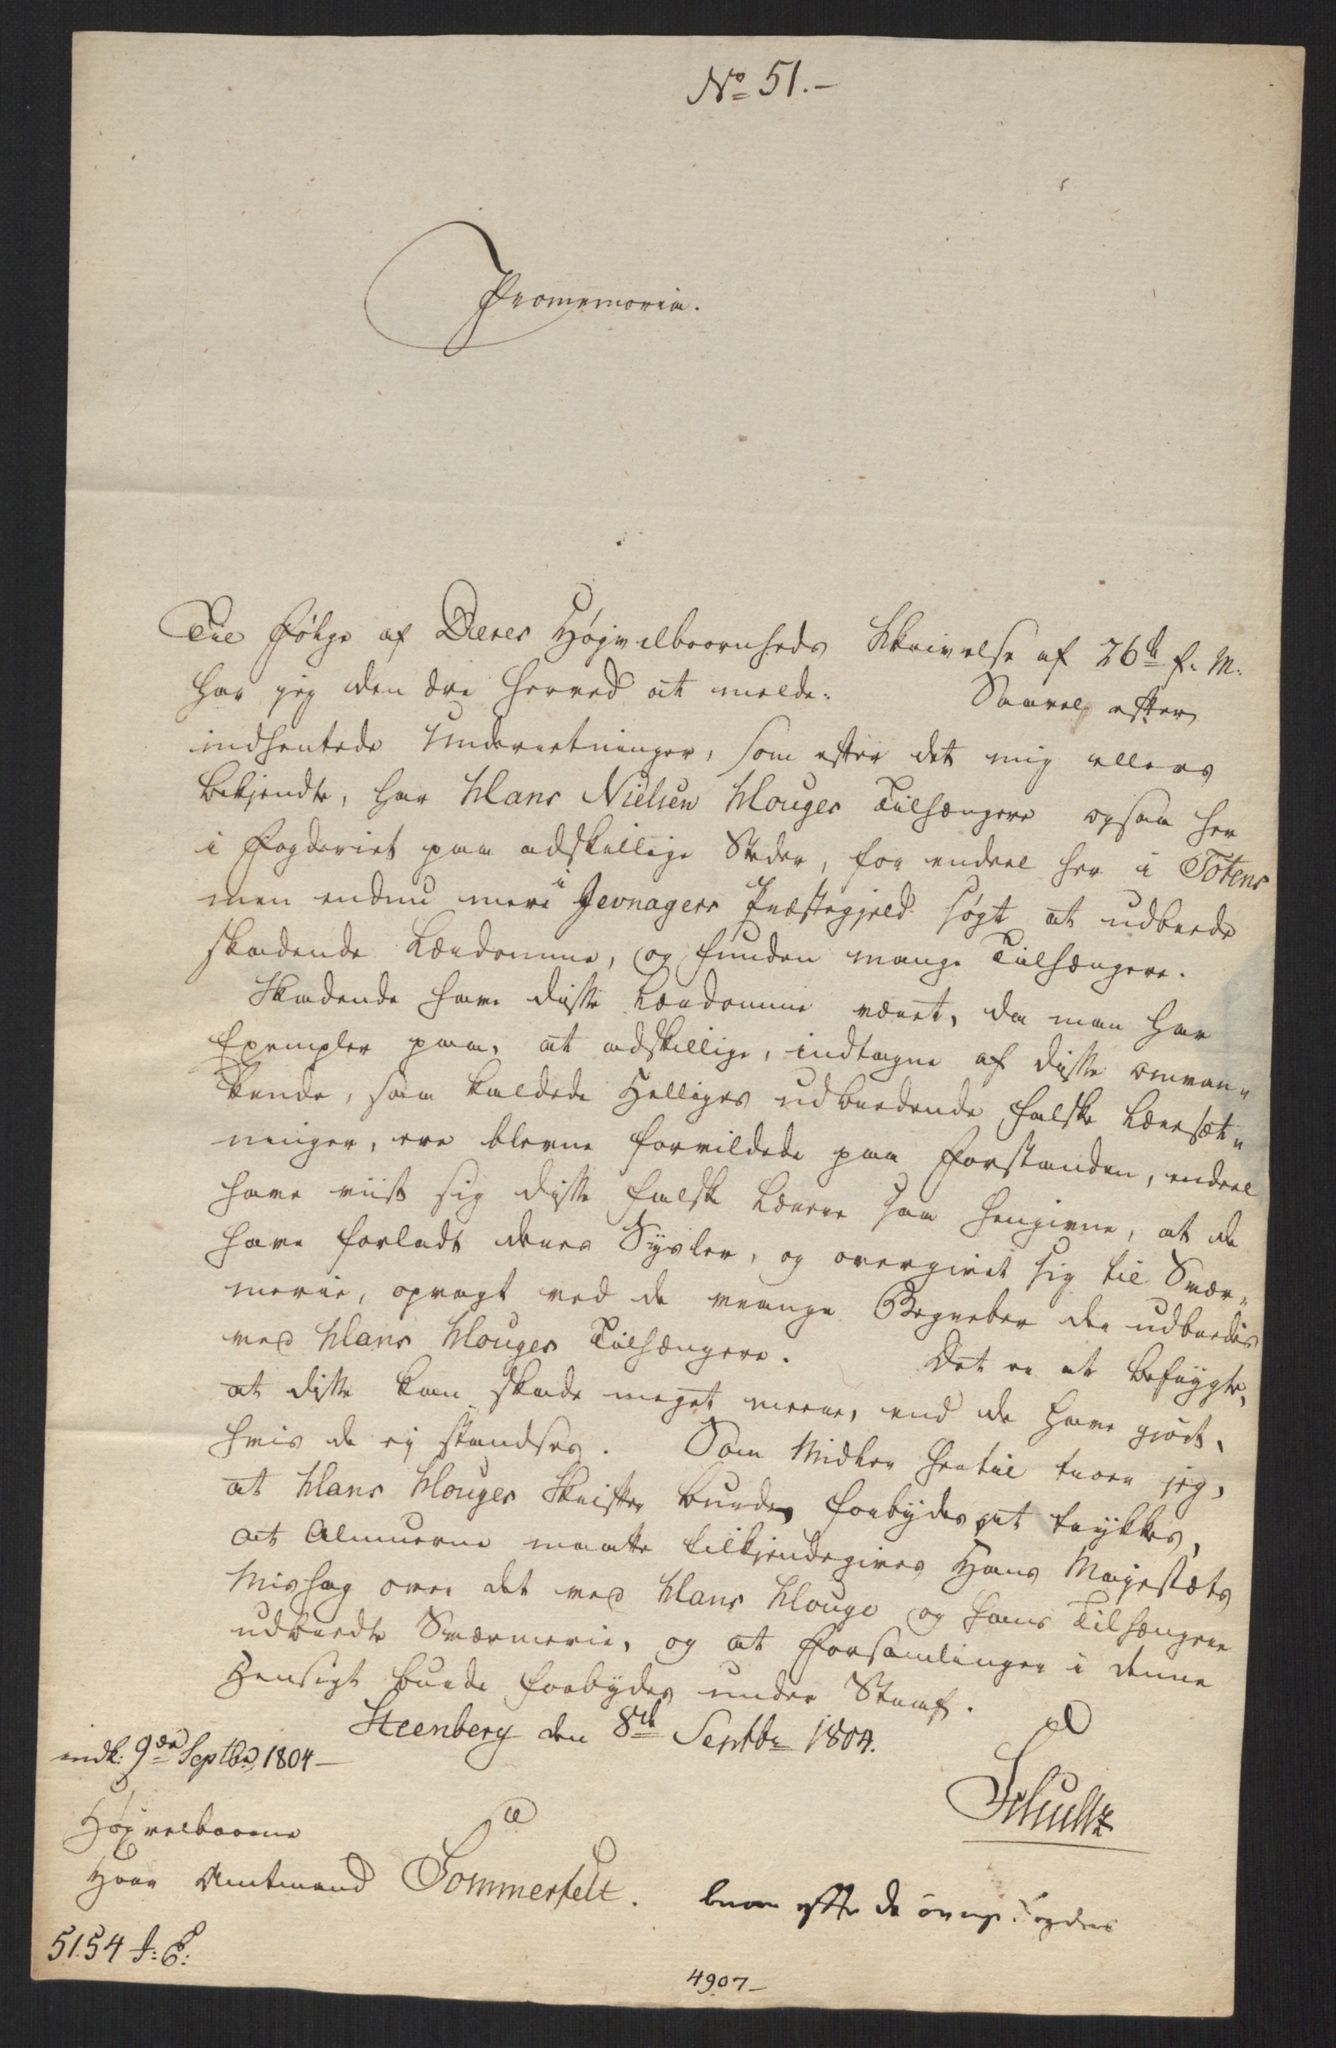 No 51.-
Promemoria.
Til Følge af Deres Høyvelbaarenheds Skrivelse af 26de f. M.
har jeg den Ære herved at melde: Saavel efter
indhentede Underretninger, som efter det mig ellers
bekjendte, har Hans Nielsen Houges Tilhængere ogsaa her
i Fogderiet paa adskillige Steder, for endeel her i Totens
men endnu mere i Jevnagers Præstegjeld søgt at udbrede
skadende Lærdomme, og funden mange Tilhængere.
Skadende have disse Lærdomme været, da man har
Exempler paa, at adskillige, indtagne af disse omvan-
kende, saa kaldede Helliges udbredende falske Læresæt-
ninger, ere blevne forvildede paa Forstanden, endeel
have viist sig disse falske Lærere saa hengivne, at de
have forladt deres Sysler, og overgivet sig til Svær-
merie, opvagt ved de mange Begreber der udbredes
ved Hans Houges Tilhængere. Det er at befrygte,
at disse kan skade meget meere, end de have giort,
hvis de ej standses. Som Midler hertil troer jeg,
at Hans Houges Skrifter burde forbydes at trykkes,
at Almuerne maatte tilkjendegives Hans Majestæts
Mishag over det ved Hans Houge og hans Tilhængere
udbredte Sværmerie, og at Forsamlinger i denne
Hensigt burde forbydes under Straf.
Steenberg den 8de Septbr 1804.
indk: 9de Septbr, 1804-
Schultz
Høyvelbaarne
Herr Amtmand Sommerfelt.
efter de øvrige Fogders
5154 J: E:
4907-